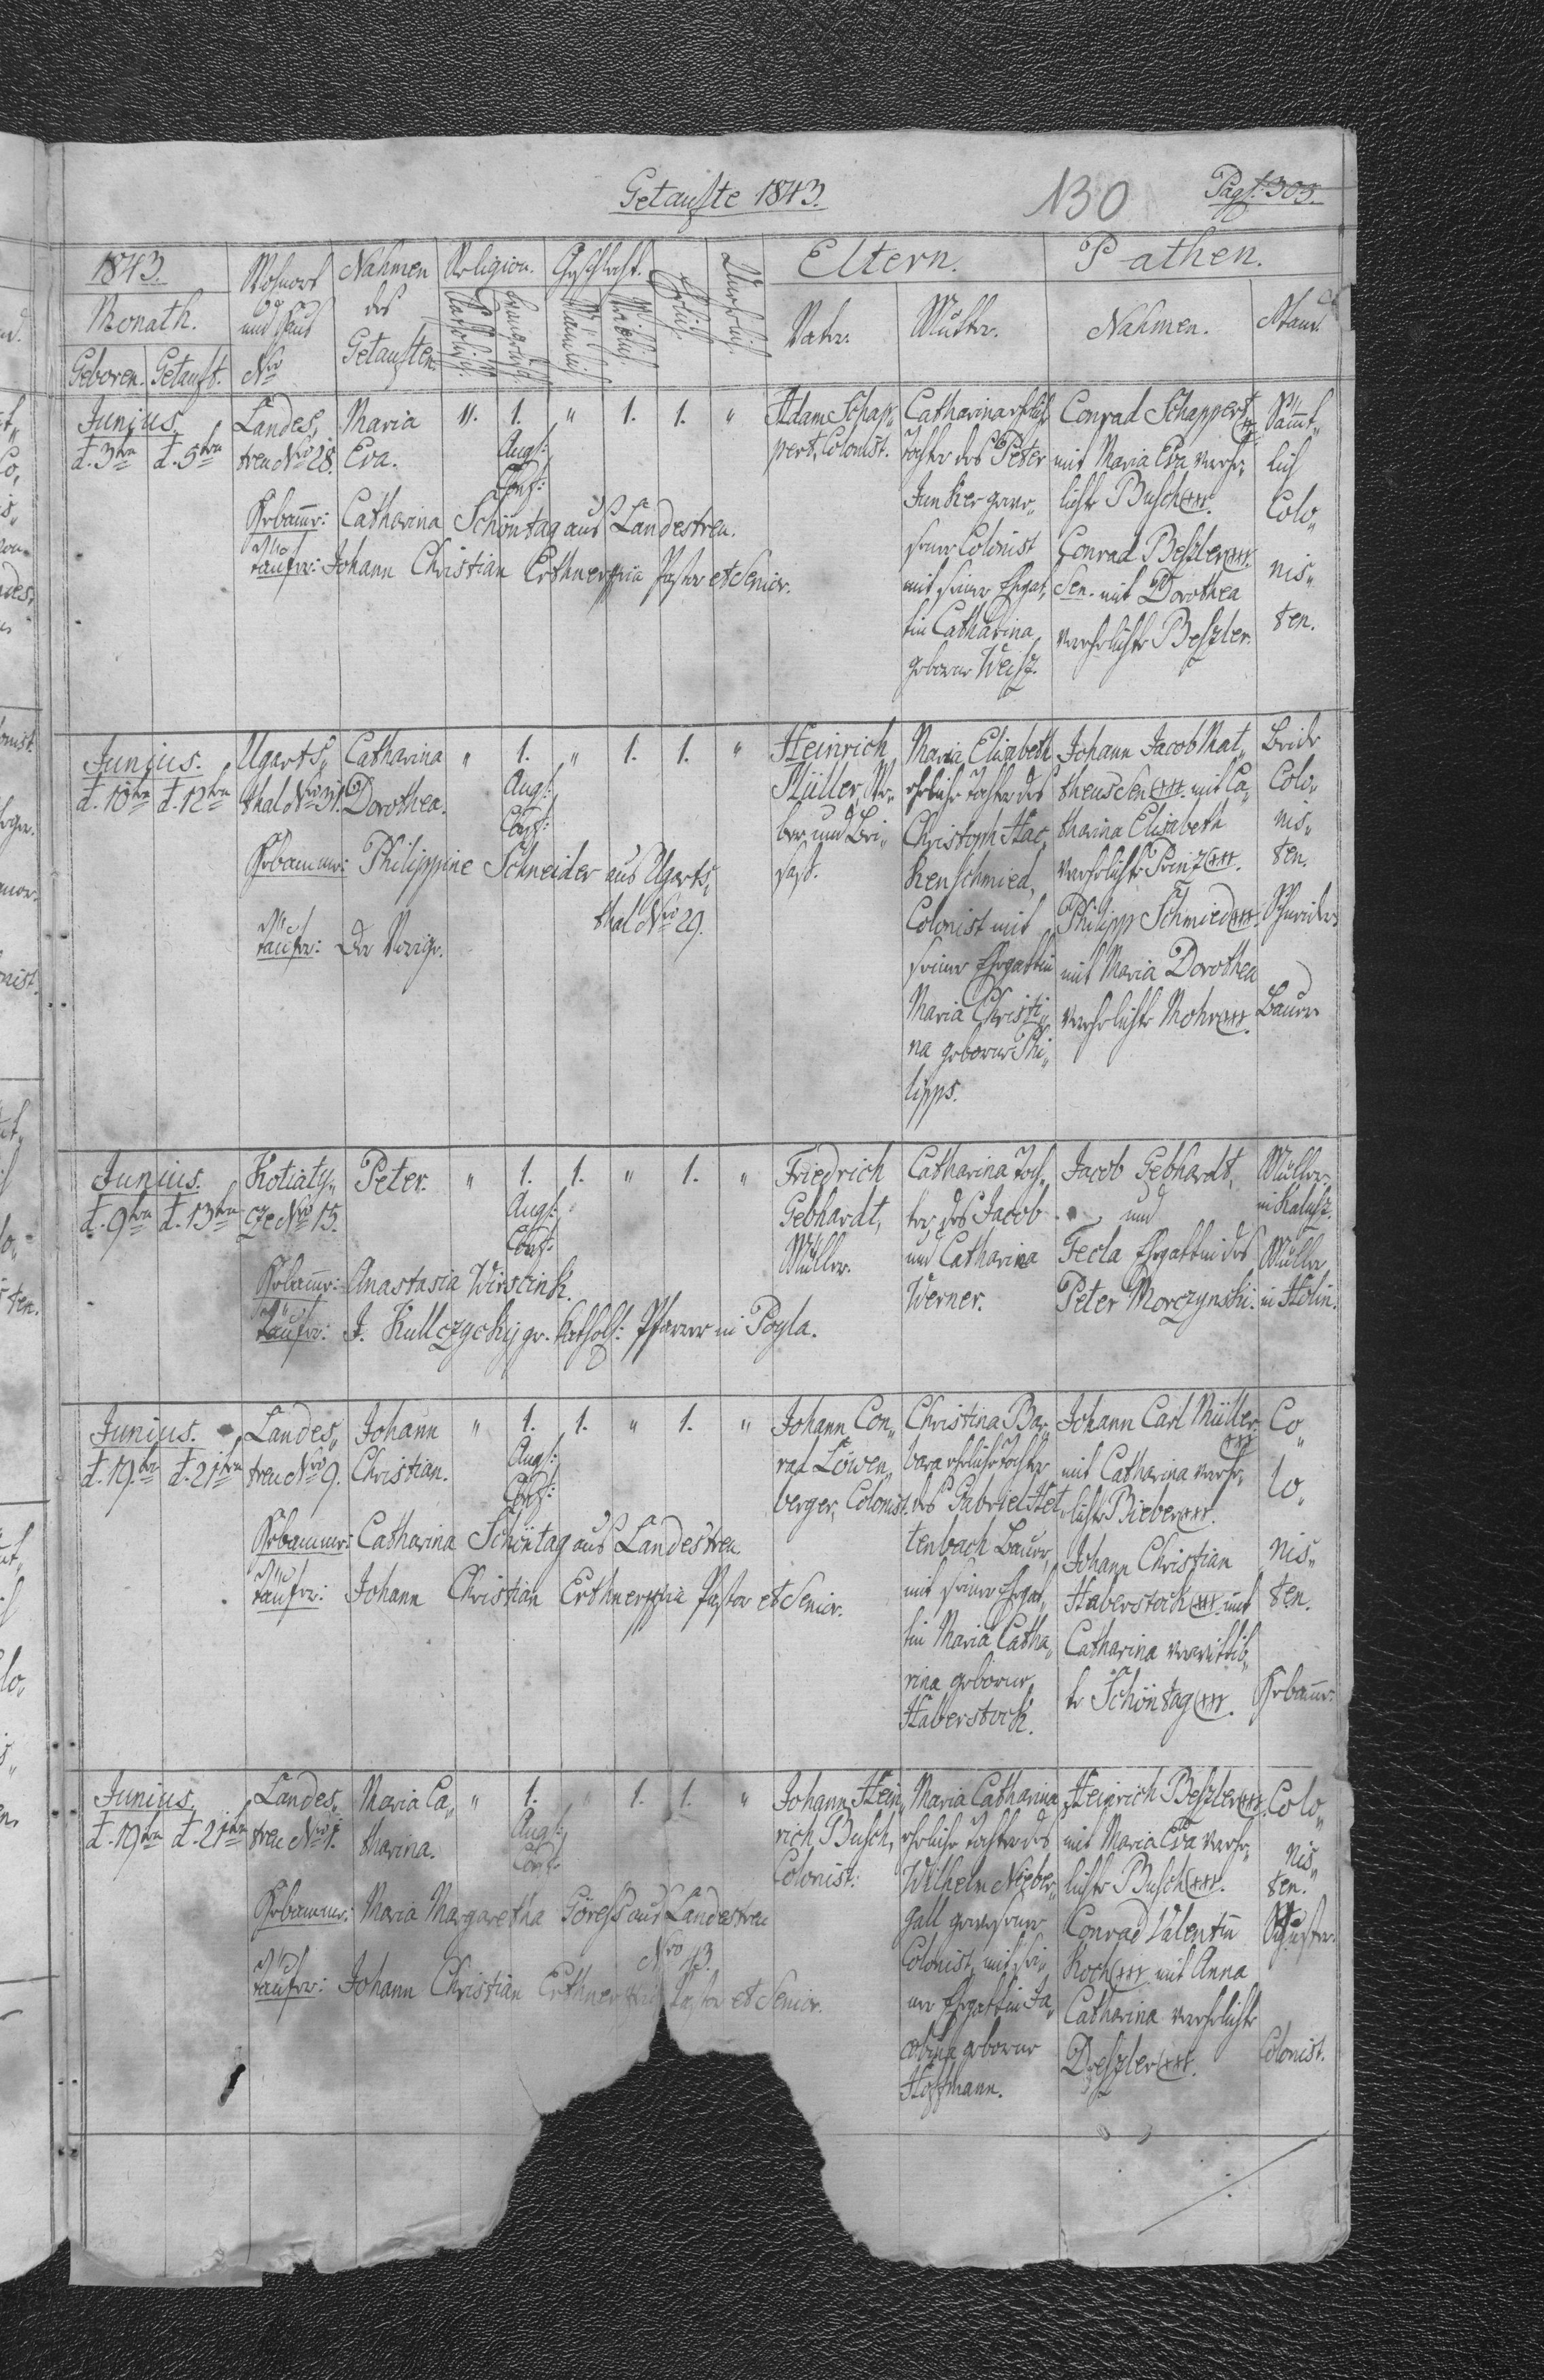 Getaufte 1843.
130
Pag: 303.
1843.
Monath.
Geboren. Getauft.
Wohnort und Haus Nro
Nahmen des Getauften.
Religion.
Catholisch.
Geschlecht.
Männlich.
Weiblich.
Ehlich.
Unehelich.
Eltern.
Vater.
Mutter.
Pathen.
Nahmen.
Stand.
Junius.
d. 3ten d. 5ten
Landes„
treu Nro 28.
Maria
Eva.
".
1.
Augs:
Conf:
"
1.
1.
"
Adam Schap„
pert, Colonist.
Catharina ehliche
Tochter des Peter
Junker gewe„
sener Colonist
mit seiner Ehegat„
tin Catharina
geborne Weisz.
Conrad Schappert
+++
mit Maria Eva verehe„
lichte Busch +++.
Conrad Beszler +++.
Sen. mit Dorothea
verehelichte Beszler.
Sämt„
lich
Colo„
nis„
ten.
Hebamme: Catharina Schöntag aus Landestreu.
Täufer: Johann Christian Erthner mpria Pastor et Senior.
Junius.
d. 10ten d. 12ten
Ugarts„
thal Nro 31.
Catharina
Dorothea.
"
1.
Augs:
Conf:
"
1.
1.
"
Heinrich
Müller, We„
ber und Bei„
sass.
Maria Elisabeth
eheliche Tochter des
Christoph Hac„
kenschmied,
Colonist mit
seiner Ehegattin
Maria Christi„
na geborne Phi„
lipps.
Johann Jacob Mat„
theus Sen +++. mit Ca„
tharina Elisabeth
verehelichte Prinz +++.
Philipp Schmied +++.
mit Maria Dorothea
verehelichte Mohr +++.
Beide
Colo„
nis„
ten.
Schneider
Bauer
Hebamme: Philippine Schneider aus Ugarts„
thal Nro 29.
Täufer: Der Vorige.
Junius.
d. 9ten d. 13ten
Kotiaty„
cze Nro 15.
Peter.
"
1.
Augs:
Conf:
1.
"
1.
"
Friedrich
Gebhardt,
Müller.
Catharina Toch„
ter des Jacob
und Catharina
Werner.
Jacob Gebhardt,
und
Tecla Ehegattin des
Peter Morczynski.
Müller
in Kalusz.
Müller
in Holin.
Hebamme: Anastasia Wirscink.
Täufer: J. Kullczyckij gr. kathol: Pfarrer in Poyla.
Junius.
d. 19ten d. 21ten
Landes„
treu Nro 9.
Johann
Christian.
"
1.
Augs:
Conf:
1.
"
1.
"
Johann Con„
rad Löwen„
berger, Colonist.
Christina Bar„
bara eheliche Tochter
des Gabriel Het„
tenbach Bauer,
mit seiner Ehegat„
tin Maria Catha„
rina geborne
Haberstock.
Johann Carl Müller
+++
mit Catharina verehe„
lichte Bieber +++.
Johann Christian
Haberstock +++. mit
Catharina verwittib„
te Schöntag +++.
Co„
lo„
nis„
ten.
Hebamme:
Hebamme: Catharina Schöntag aus Landestreu
Täufer: Johann Christian Erthner mpria Pastor et Senior.
Junius.
d. 19ten d. 21ten
Landes„
treu Nro 1.
Maria Ca„
tharina.
"
1.
Augs:
Conf:
"
1.
1.
"
Johann Hein„
rich Busch,
Colonist:
Maria Catharina
eheliche Tochter des
Wilhelm Nieber„
gall gewesener
Colonist, mit sei„
ner Ehegattin Ja„
cobina geborne
Hoffmann.
Heinrich Beszler +++.
mit Maria Eva verehe„
lichte Busch +++.
Conrad Valentin
Koch +++. mit Anna
Catharina verehelichte
Dreszler +++.
Colo„
nis„
ten.
Schuster.
Colonist.
Hebamme: Maria Margaretha Göress aus Landestreu
Nro 43.
Täufer: Johann Christian Erthner mpria Pastor et Senior.